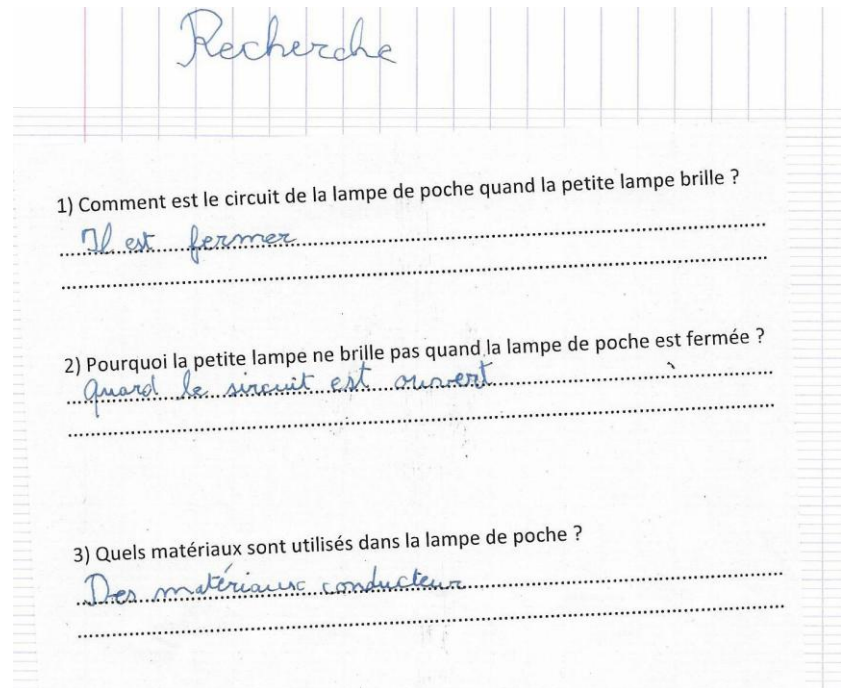 Recherche
1) Comment est le circuit de la lampe de poche quand la petite lampe brille ?
Il est fermer
2) Pourquoi la petite lampe ne brille pas quand la lampe de poche est fermée ?
Quand le sircuit est ouvert
3) Quels matériaux sont utilisés dans la lampe de poche ?
Des matériaux conducteur